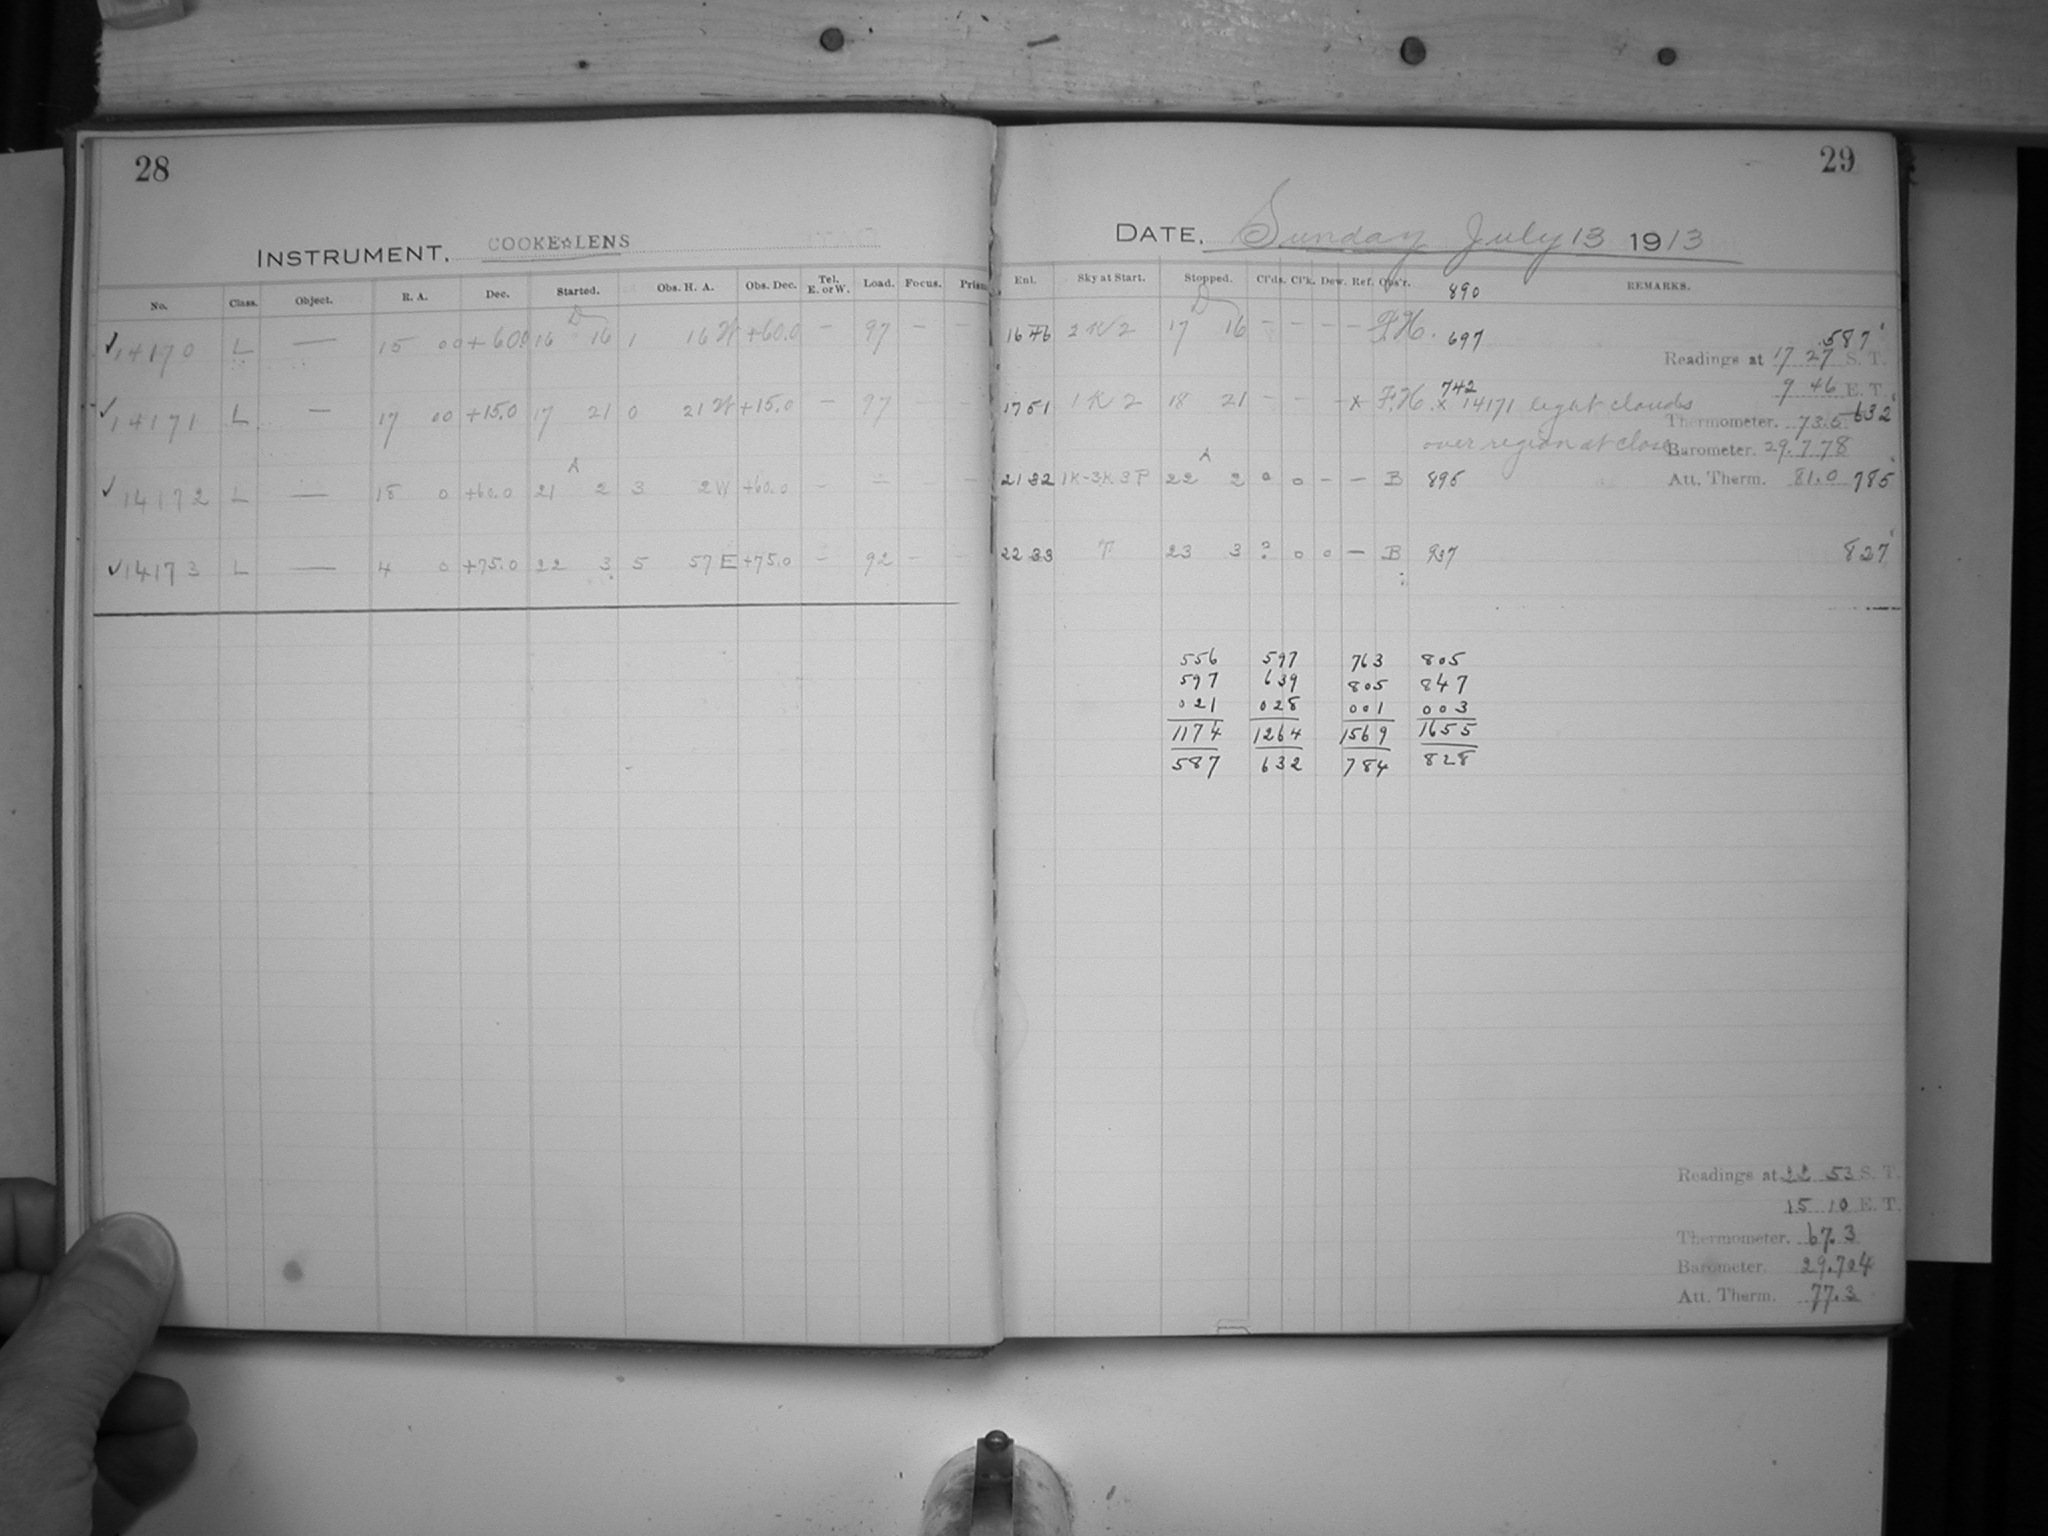 28
INSTRUMENT. COOKE☆LENS
No. Class. Object. R. A. Dec. Started. Obs. H. A. Obs. Dec. Tel. E. or W. Load. Focus. Prism
✓14170 L — 15 00 +60.0 16 D 16 1 16 W +60.0 — 97 — —
✓14171 L — 17 00 +15.0 17 21 0 21 W +15.0 — 97 — —
✓14172 L — 18 0 +60.0 21 A 2 3 2 W +60.0 — — — —
✓14173 L — 4 0 +75.0 22 3 5 57 E +75.0 — 92 — —
29
DATE, Sunday July 13 1913
Enl. Sky at Start. Stopped. Cl'ds. Cl'k. Dew. Ref. Obs'r. REMARKS.
890
16 46 2 K 2 17 D 16 — — — — F.H. 697 587
Readings at 17 27 S. T.
9 46 E. T.
742
1751 1 K 2 18 21 — — — x F.H. x 14171 light clouds 632
over region at close
Thermometer. 73.5
Barometer. 29.778
Att. Therm. 81.0
2132 1K-3K3P 22 A 2 0 0 — — B 896 785
2233 T 23 3 ? 0 0 — B 937 827
556 597 763 805
597 639 805 847
021 028 001 003
1174 1264 1569 1655
587 632 784 828
Readings at 22 53 S. T.
15 10 E. T.
Thermometer. 67.3
Barometer. 29.704
Att. Therm. 77.3